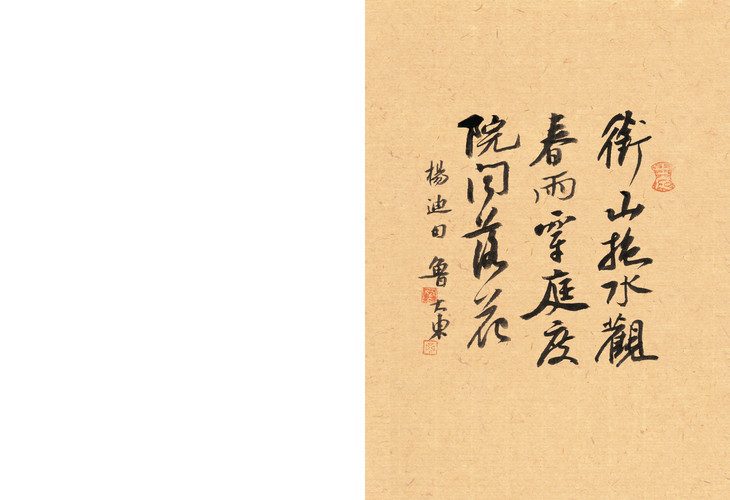 銜山抱水觀
春雨穿庭度
院問落花
楊迪曰 魯大東